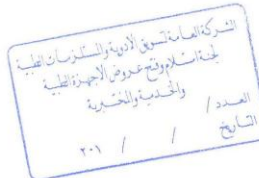 الشركة العامة لتسويق الأدوية والمستلزمات الطبية
لجنة استلام وفتح عروض الأجهزة الطبية
والخدمية والمختبرية
العدد /
التاريخ / / ٢٠١